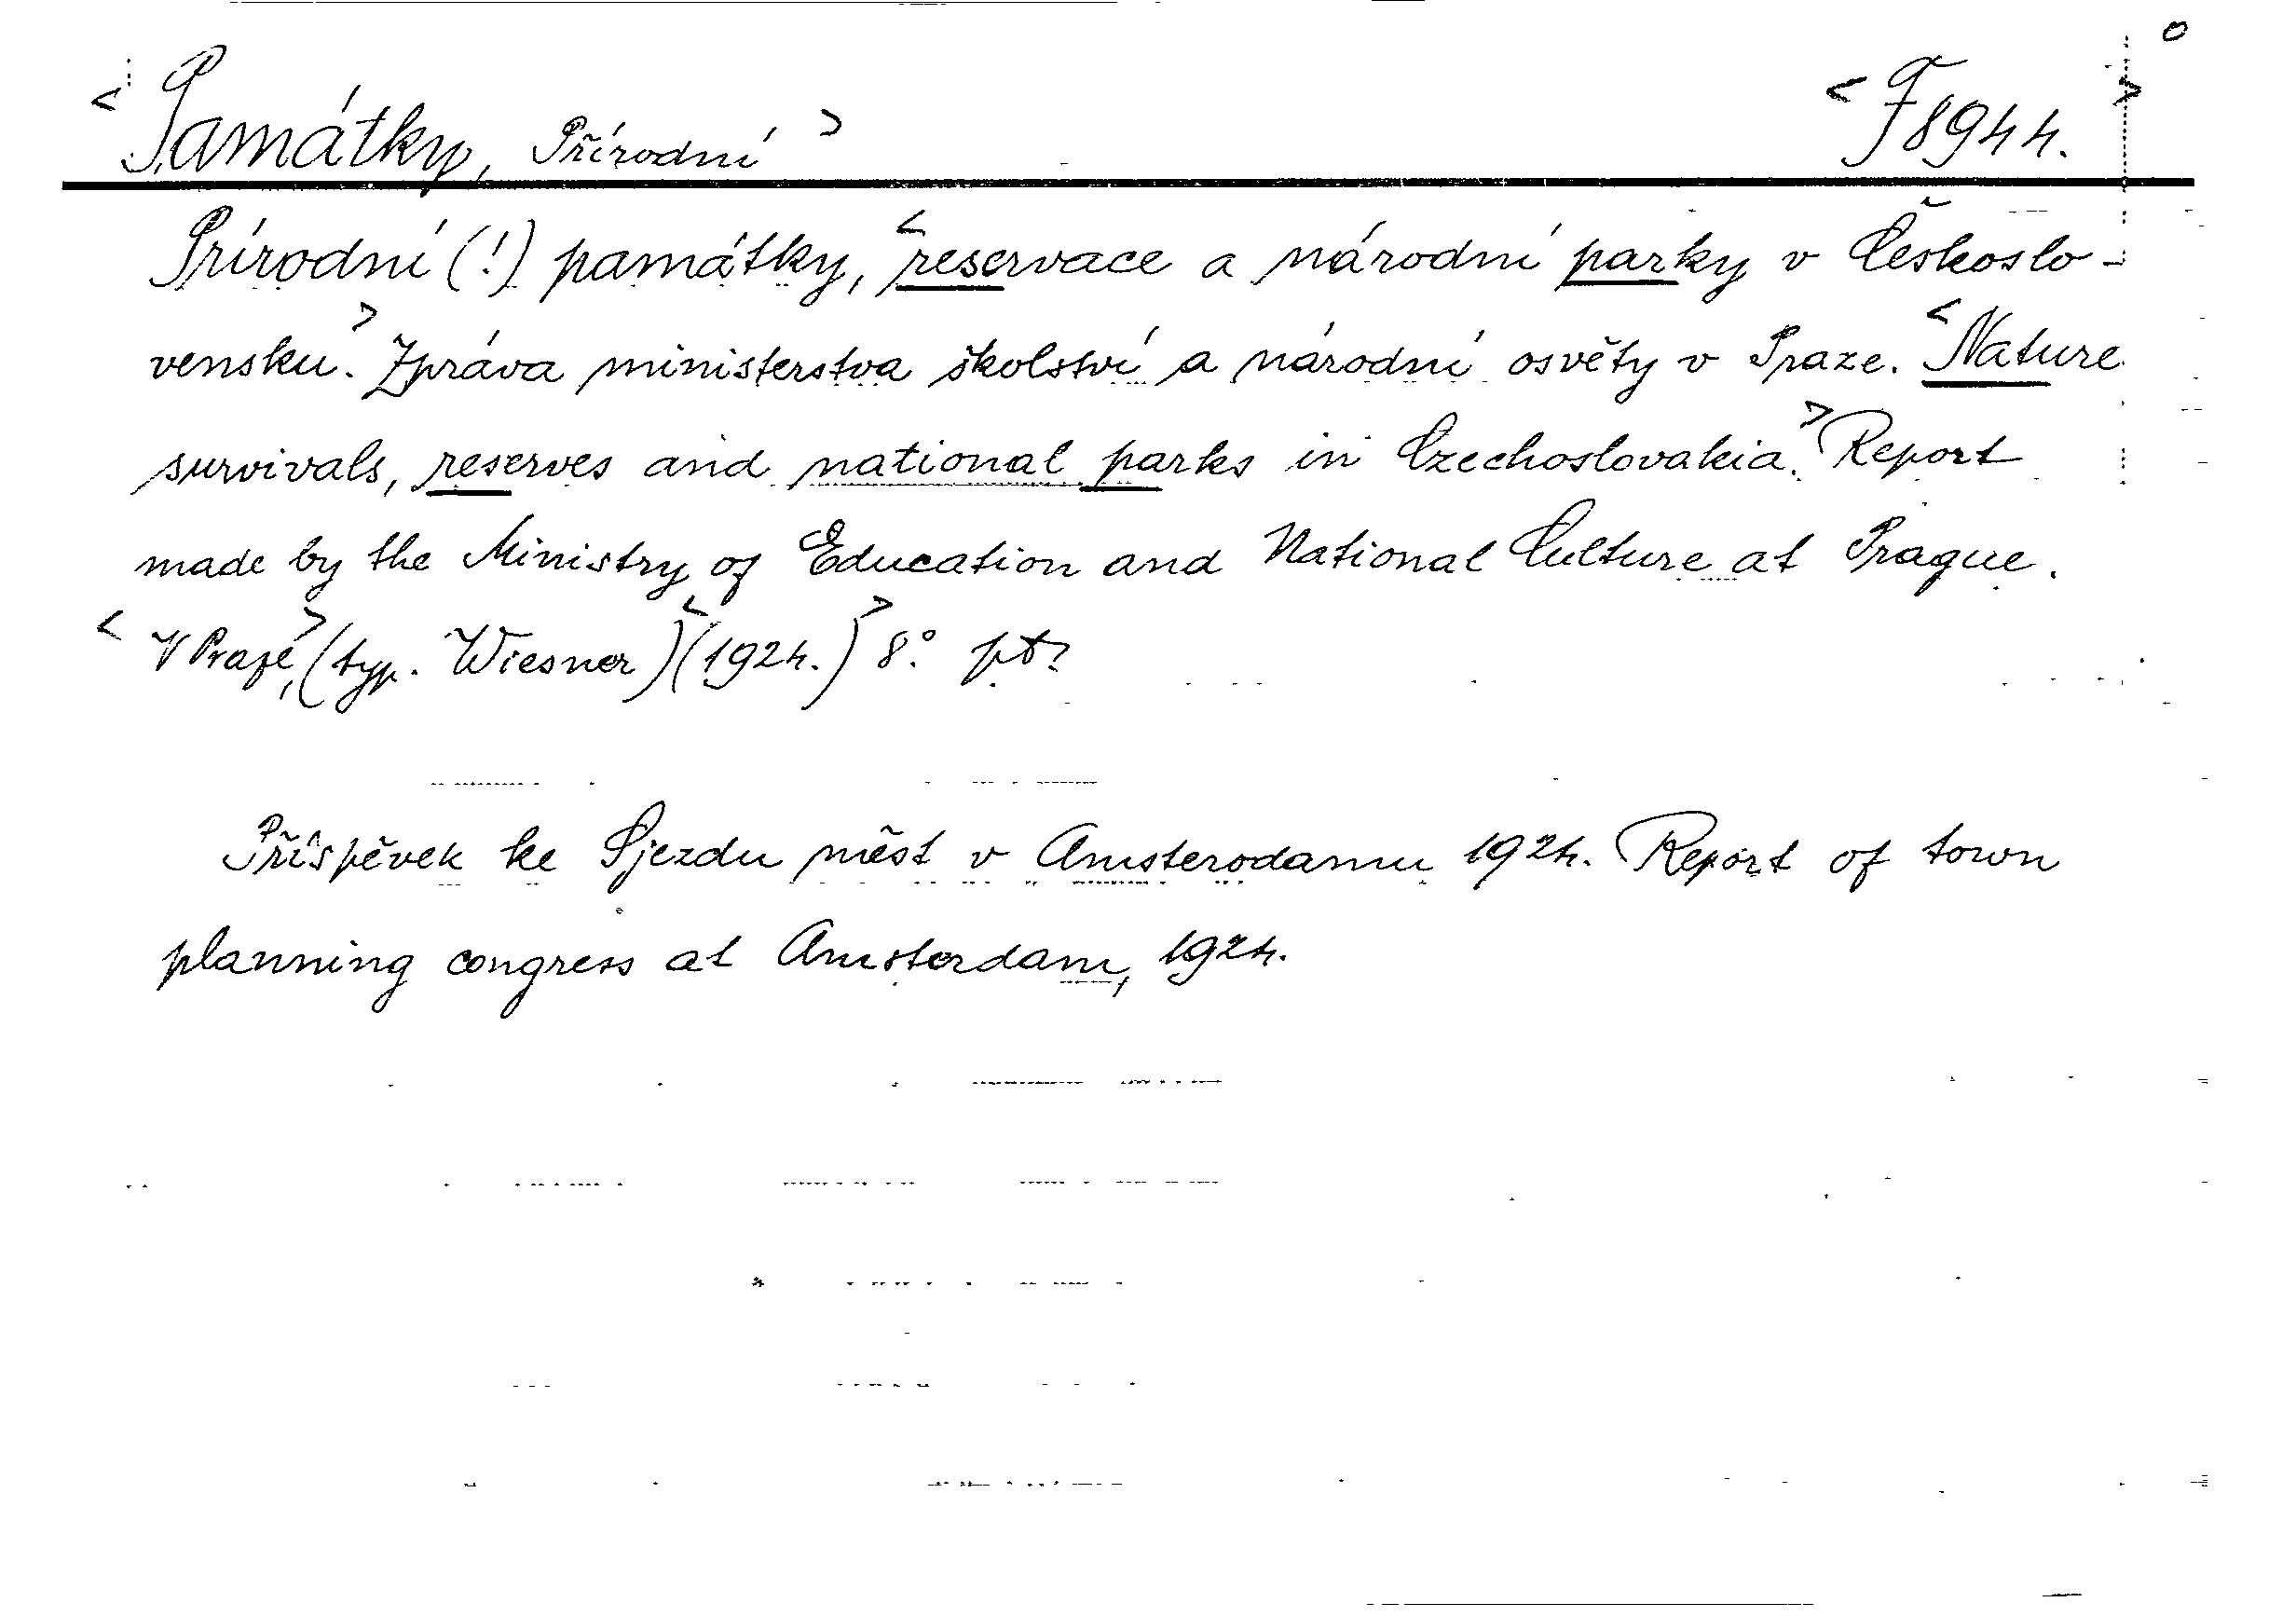 < Památky, Přírodní > < F 8944. >
Prírodní (!) památky, < reservace a národní parky v Českoslo-
vensku. > Zpráva ministerstva školství a národní osvěty v Praze. < Nature
survivals, reserves and national parks in Czechoslovakia. > Report
made by the Ministry of Education and National Culture at Prague.
< V Praze, > (typ. Wiesner) < (1924.) > 8°.
Příspěvek ke Sjezdu měst v Amsterodamu 1924. Report of town
planning congress at Amsterdam, 1924.